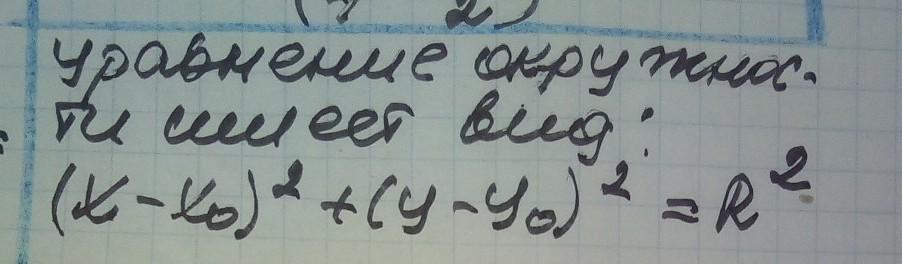 уравнение окружнос-
ти имеет вид:
(x-x₀)² + (y-y₀)² = R²